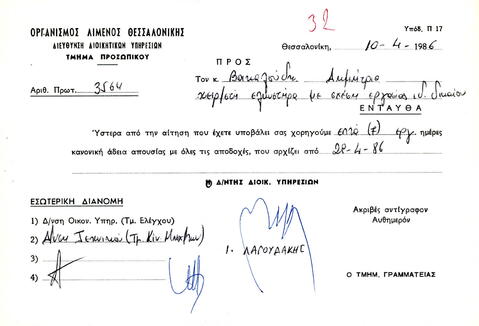 32
Υπόδ. Π 17
ΟΡΓΑΝΙΣΜΟΣ ΛΙΜΕΝΟΣ ΘΕΣΣΑΛΟΝΙΚΗΣ
ΔΙΕΥΘΥΝΣΗ ΔΙΟΙΚΗΤΙΚΩΝ ΥΠΗΡΕΣΙΩΝ
ΤΜΗΜΑ ΠΡΟΣΩΠΙΚΟΥ
Θεσσαλονίκη, 10-4-1986
Αριθ. Πρωτ. 3564
ΠΡΟΣ
Τον κ. Δημήτριο
χειριστή με σχέση εργασίας ιδ. δικαίου
ΕΝΤΑΥΘΑ
Ύστερα από την αίτηση που έχετε υποβάλει σας χορηγούμε επτά (7) εργ. ημέρες
κανονική άδεια απουσίας με όλες τις αποδοχές, που αρχίζει από 28-4-86
Ο Δ/ΝΤΗΣ ΔΙΟΙΚ. ΥΠΗΡΕΣΙΩΝ
ΕΣΩΤΕΡΙΚΗ ΔΙΑΝΟΜΗ
1) Δ/νση Οικον. Υπηρ. (Τμ. Ελέγχου)
2) Δ/νση Τεχνικού (Τμ. Κιν. Μηχ/των)
3)
4)
Ι. ΛΑΓΟΥΔΑΚΗΣ
Ακριβές αντίγραφον
Αυθημερόν
Ο ΤΜΗΜ. ΓΡΑΜΜΑΤΕΙΑΣ